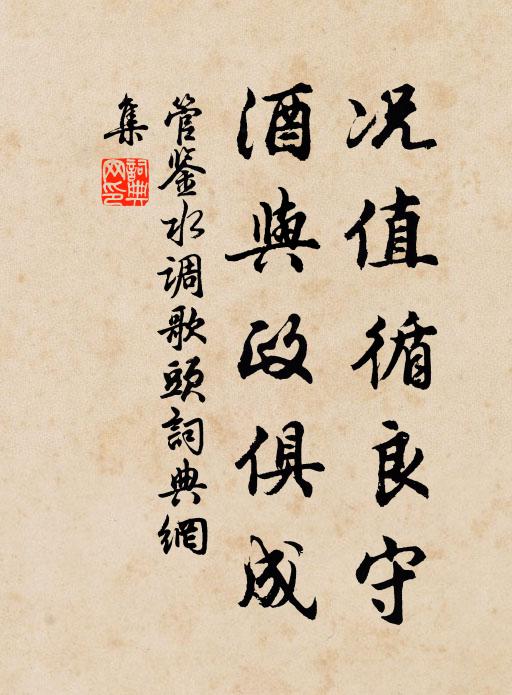 况值循良守
酒與政俱成
管鉴水调歌頭詞典網
集
詞典網印